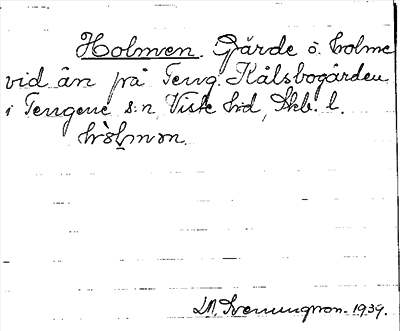 Holmen. Gärde o. holme
vid ån på Teng. Kålsbogården
i Tengene s:n, Viste hd, Skb. l.
hòlmən.
Svenungson 1939.